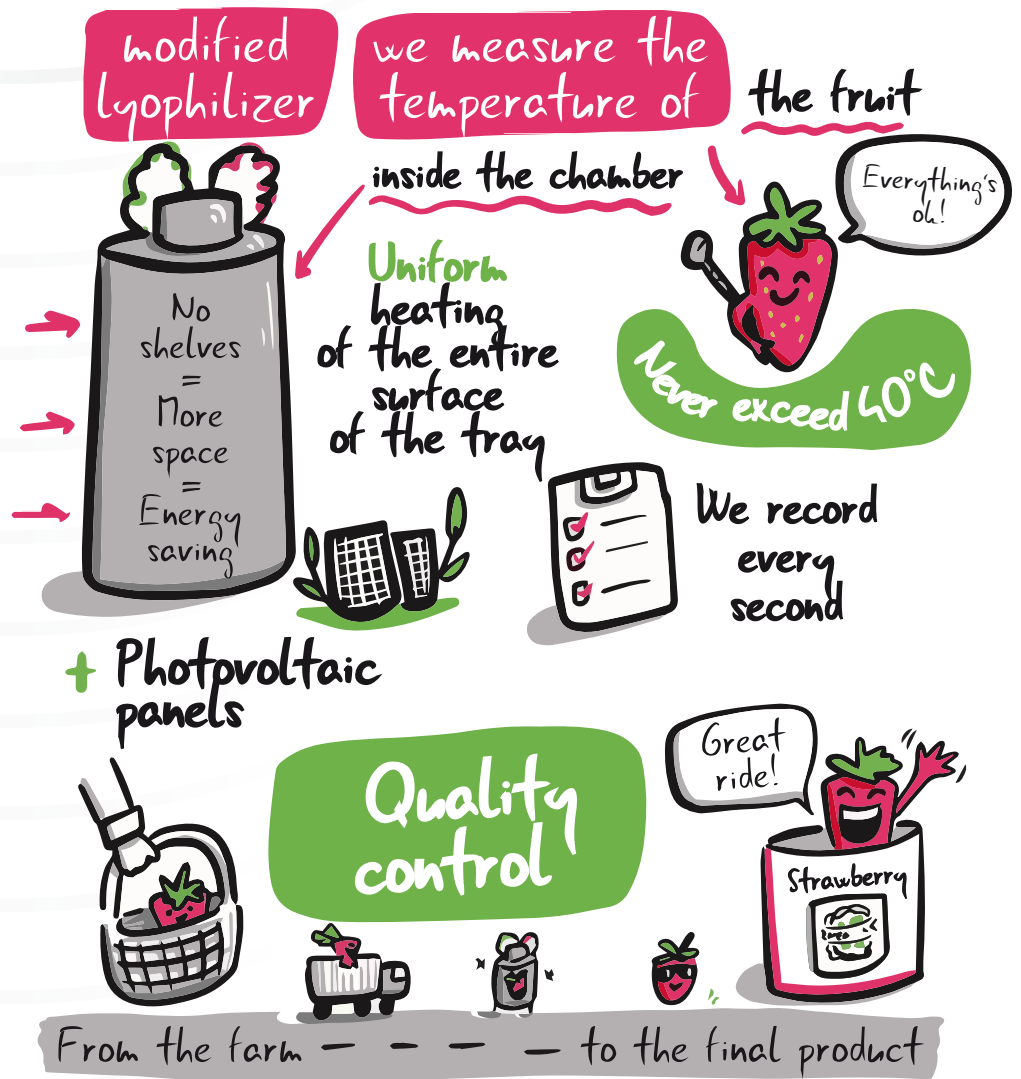 modified
lyophilizer
we measure the
temperature of
the fruit
inside the chamber
Everything's
ok!
No
shelves
=
More
space
=
Energy
saving
Uniform
heating
of the entire
surface
of the tray
Never exceed 40°C
We record
every
second
+ Photovoltaic
panels
Quality
control
Great
ride!
Strawberry
From the farm – – – – to the final product